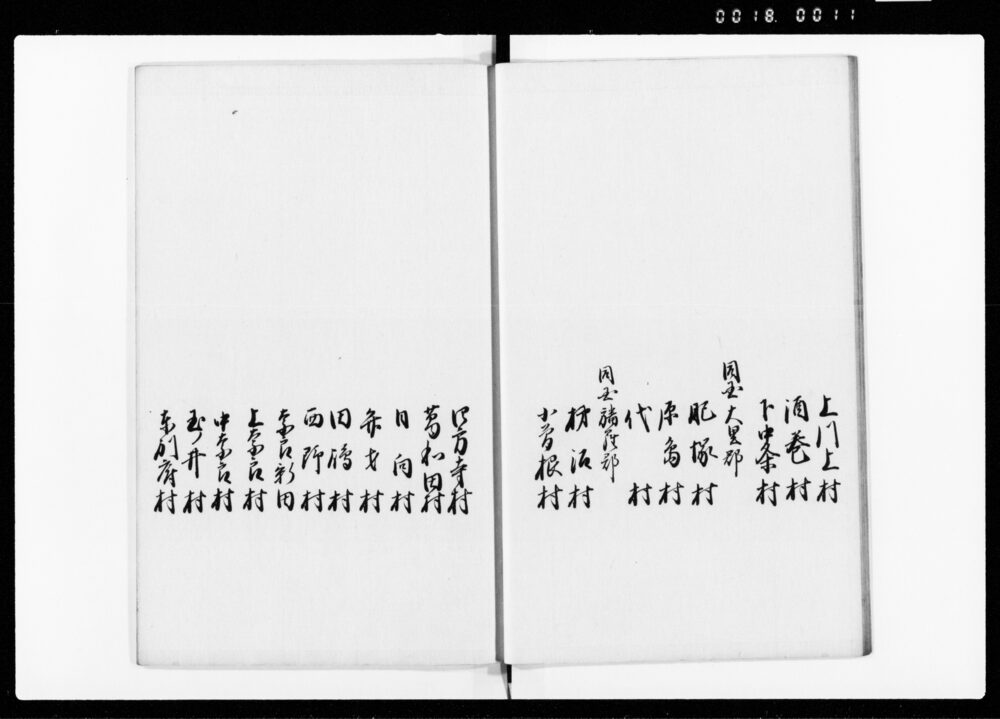 0018 0011
上川上村
酒巻村
下中条村
同国大里郡
肥塚村
原島村
代村
同国幡羅郡
柿沼村
小曽根村
四方寺村
葛和田村
日向村
弁才村
田嶋村
西野村
奈良新田
上奈良村
中奈良村
玉ノ井村
東別府村